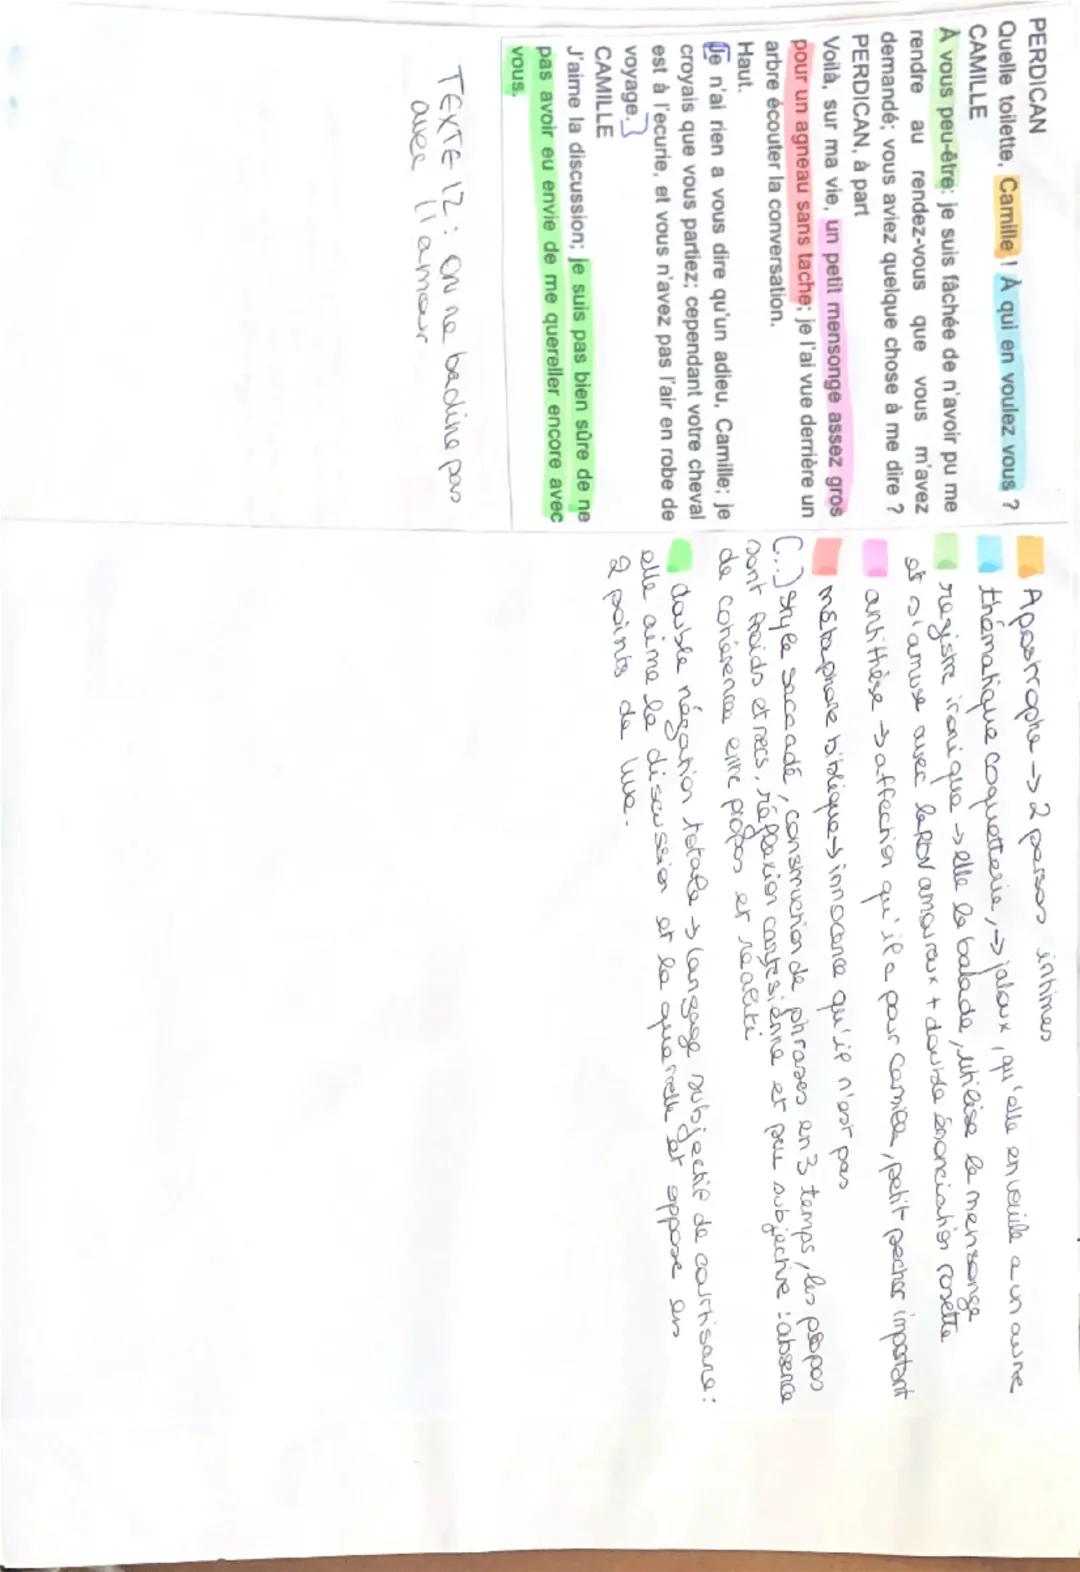 PERDICAN
Quelle toilette, Camille ! À qui en voulez vous ?
CAMILLE
À vous peu-être; je suis fâchée de n'avoir pu me
rendre au rendez-vous que vous m'avez
demandé; vous aviez quelque chose à me dire ?
PERDICAN, à part
Voilà, sur ma vie, un petit mensonge assez gros
pour un agneau sans tache; je l'ai vue derrière un
arbre écouter la conversation.
Haut.
Je n'ai rien a vous dire qu'un adieu, Camille; je
croyais que vous partiez; cependant votre cheval
est à l'ecurie, et vous n'avez pas l'air en robe de
voyage.]
CAMILLE
J'aime la discussion; je suis pas bien sûre de ne
pas avoir eu envie de me quereller encore avec
vous.
TEXTE 12 : on ne badine pas
avec l'amour
Apostrophe -> 2 persos intimes
thématique coquetterie, -> jaloux, qu'elle en veuille a un autre
registre ironique -> elle le balade, utilise le mensonge
et s'amuse avec le RDV amoureux + double énonciation rosette
antithèse -> affection qu'il a pour camille, petit pecher important
métaphore biblique -> innocence qu'il n'est pas
[...] style saccadé, construction de phrases en 3 temps, les propos
sont froids et secs, réflexion cartésienne et peu subjective : absence
de cohérence entre propos et réalité
double négation totale -> langage subjectif de courtisane :
elle aime la discussion et la querelle et oppose en
2 points de vue.